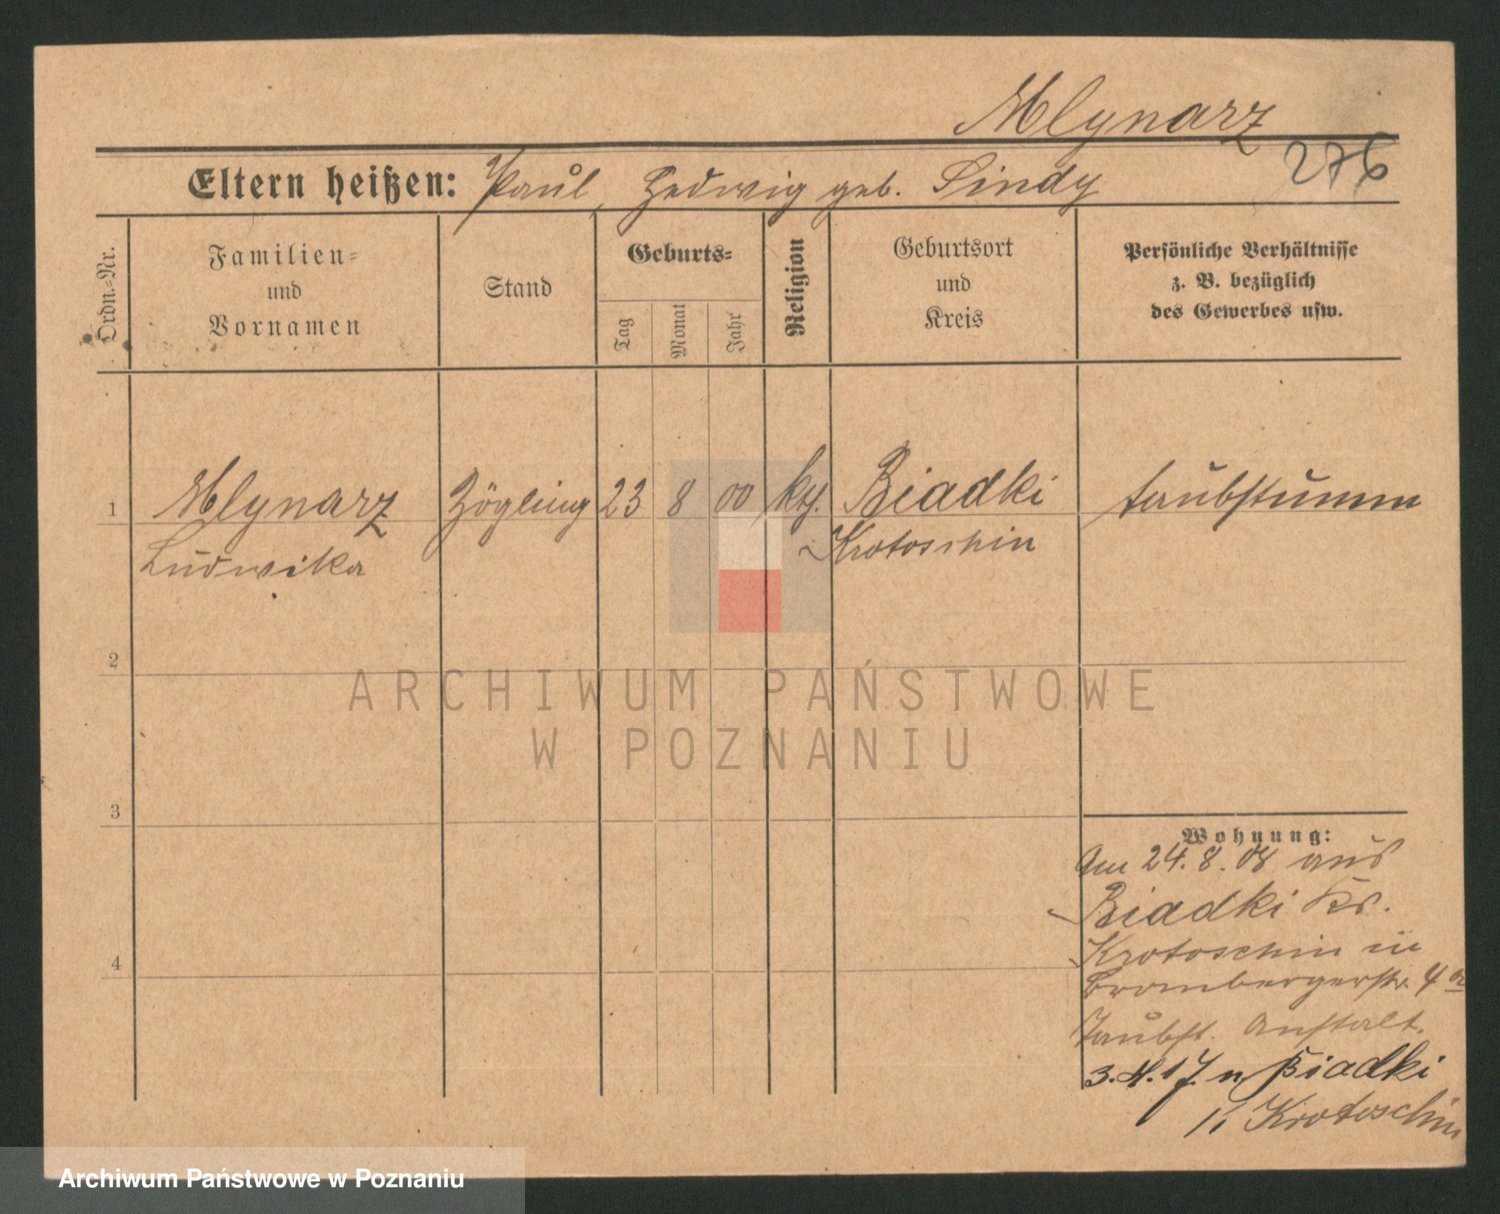 Mlynarz
276
Eltern heißen: Paul, Hedwig geb. Lindy
Ordn.-Nr.
Familien- und Vornamen
Stand
Geburts-
Tag
Monat
Jahr
Religion
Geburtsort und Kreis
Persönliche Verhältnisse
z. B. bezüglich
des Gewerbes usw.
1 Mlynarz Zögling 23 8 00 kth. Biadki taubstumm
Ludwika Krotoschin
2
3
4
Wohnung:
Am 24.8.08 aus
Biadki Kr.
Krotoschin in
Brombergerstr. 4a
Taubst. Anstalt.
n Biadki
Krotoschin
ARCHIWUM PAŃSTWOWE
W POZNANIU
Archiwum Państwowe w Poznaniu